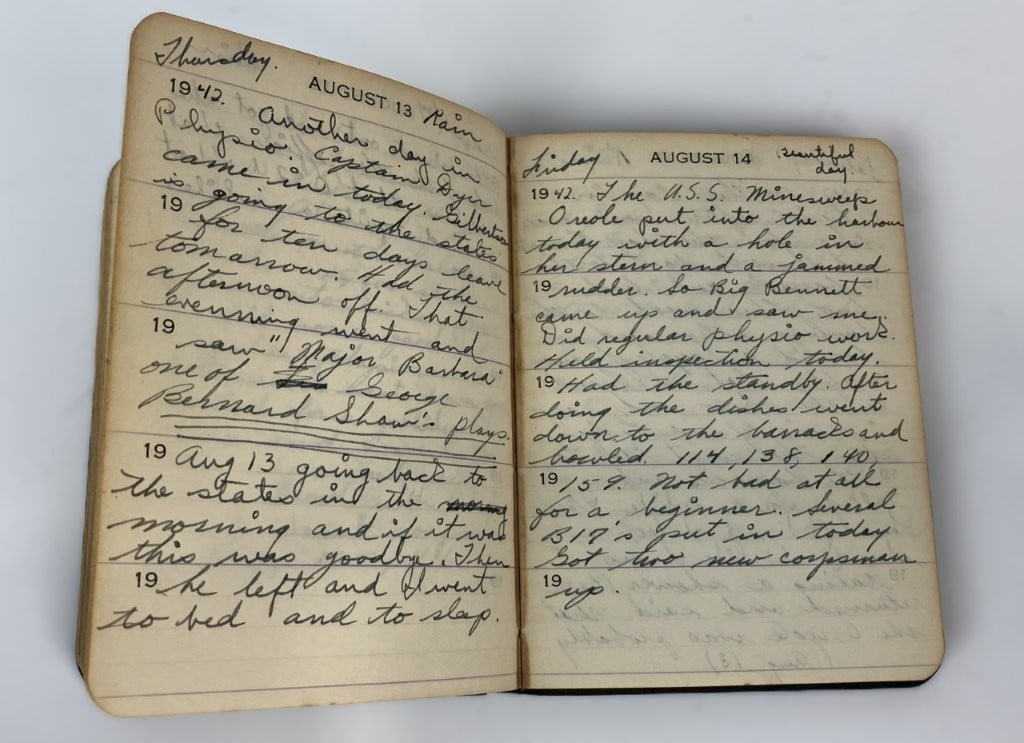 Thursday.
AUGUST 13 Rain
1942. Another day in
Physio. Captain Dyer
came in today. Gilbertson
is going to the states
19 for ten days leave
tomarrow. Had the
afternoon off. That
evenning went and
19 saw "Major Barbara"
one of George
Bernard Shaw's plays.
19 Aug 13 going back to
the states in the
morning and if it was
this was goodbye. Then
19 he left and I went
to bed and to slep.
Friday AUGUST 14 beautiful
day.
1942. The A.S.S. Minesweep
Oreole put into the harbour
today with a hole in
her stern and a jammed
19 rudder. So Big Bennett
came up and saw me.
Did regular physio work.
Held inspection today.
19 Had the standby. After
doing the dishes went
down to the barracks and
bowled. 114, 138, 140,
19 159. Not bad at all
for a beginner. Several
B17's put in today
Got two new corpsman
19 up.